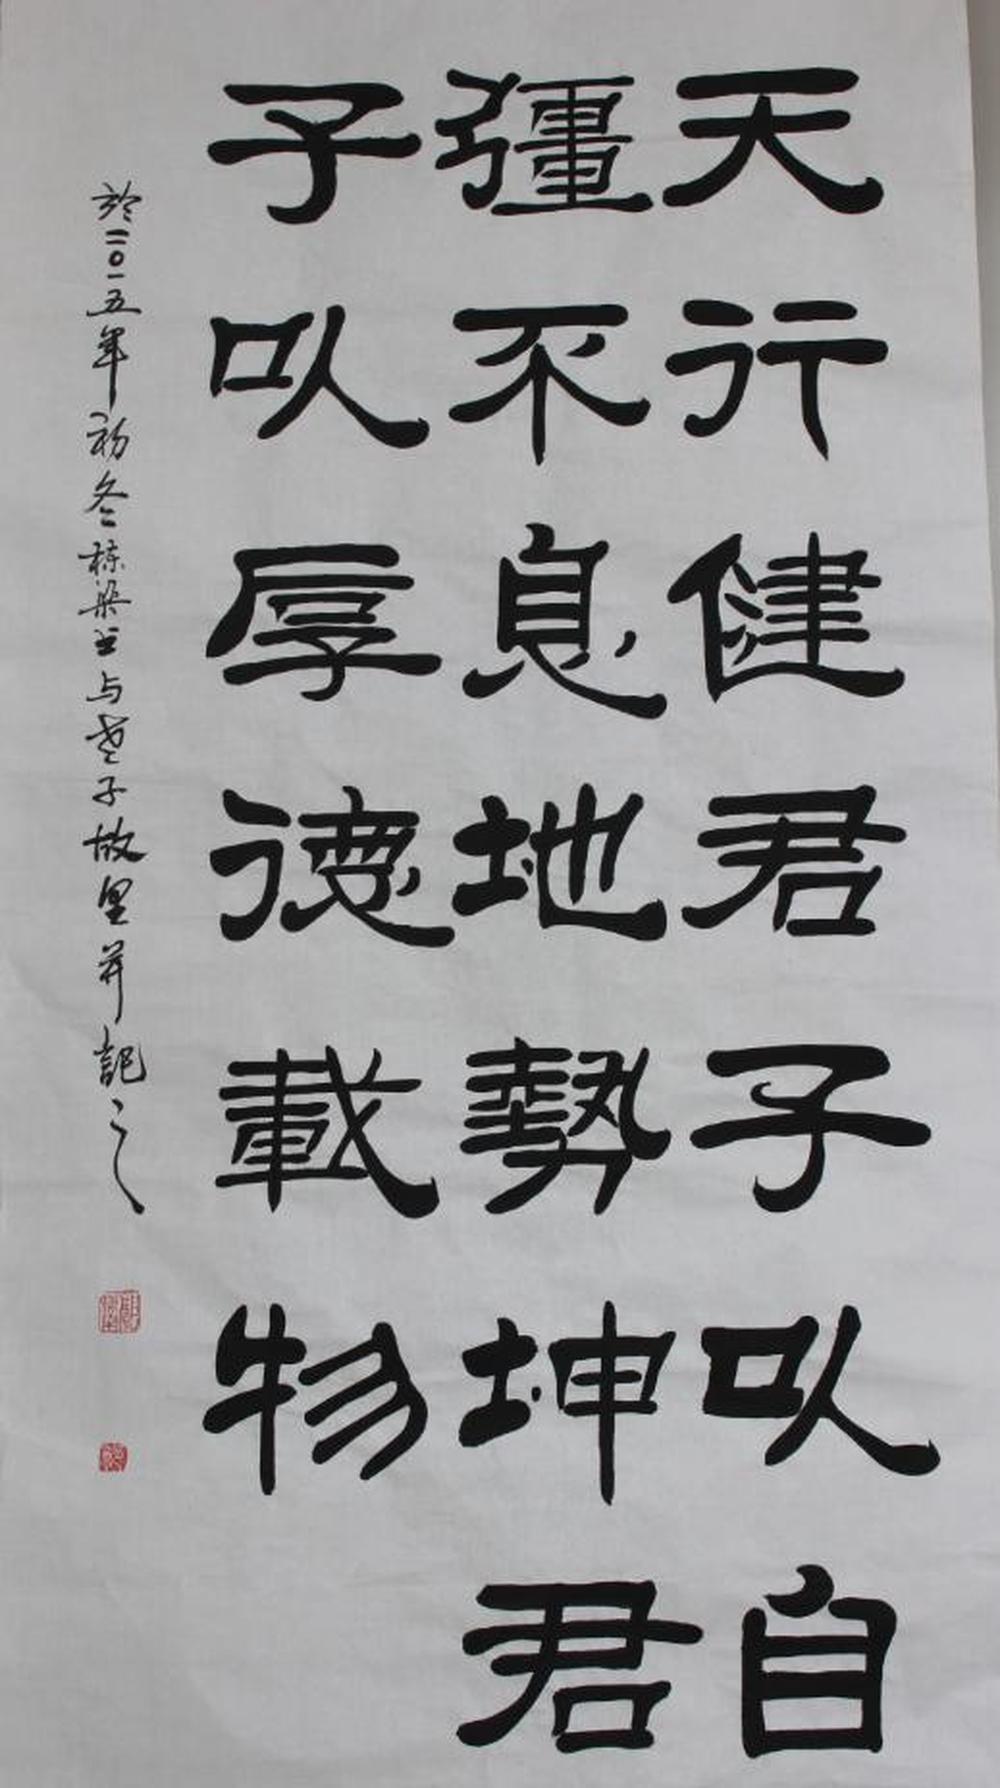 天行健君子以自
彊不息地勢坤君
子以厚德載物
於二〇一五年初冬栋梁书与老子故里并記之